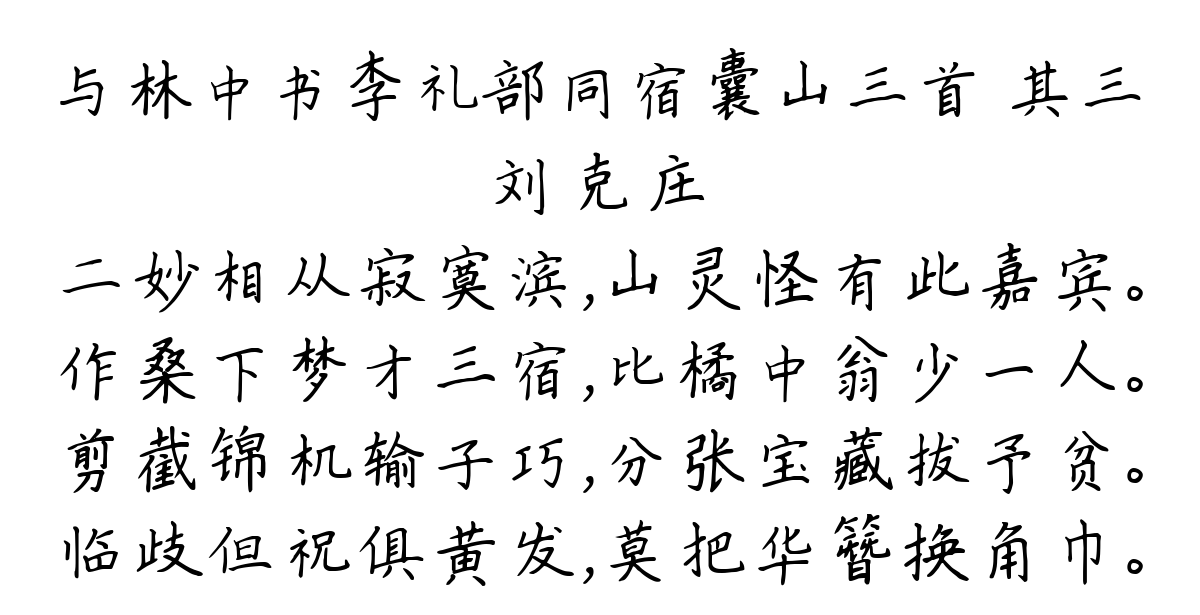 与林中书李礼部同宿囊山三首 其三
刘克庄
二妙相从寂寞滨,山灵怪有此嘉宾。
作桑下梦才三宿,比橘中翁少一人。
剪截锦机输子巧,分张宝藏拔予贫。
临歧但祝俱黄发,莫把华簪换角巾。